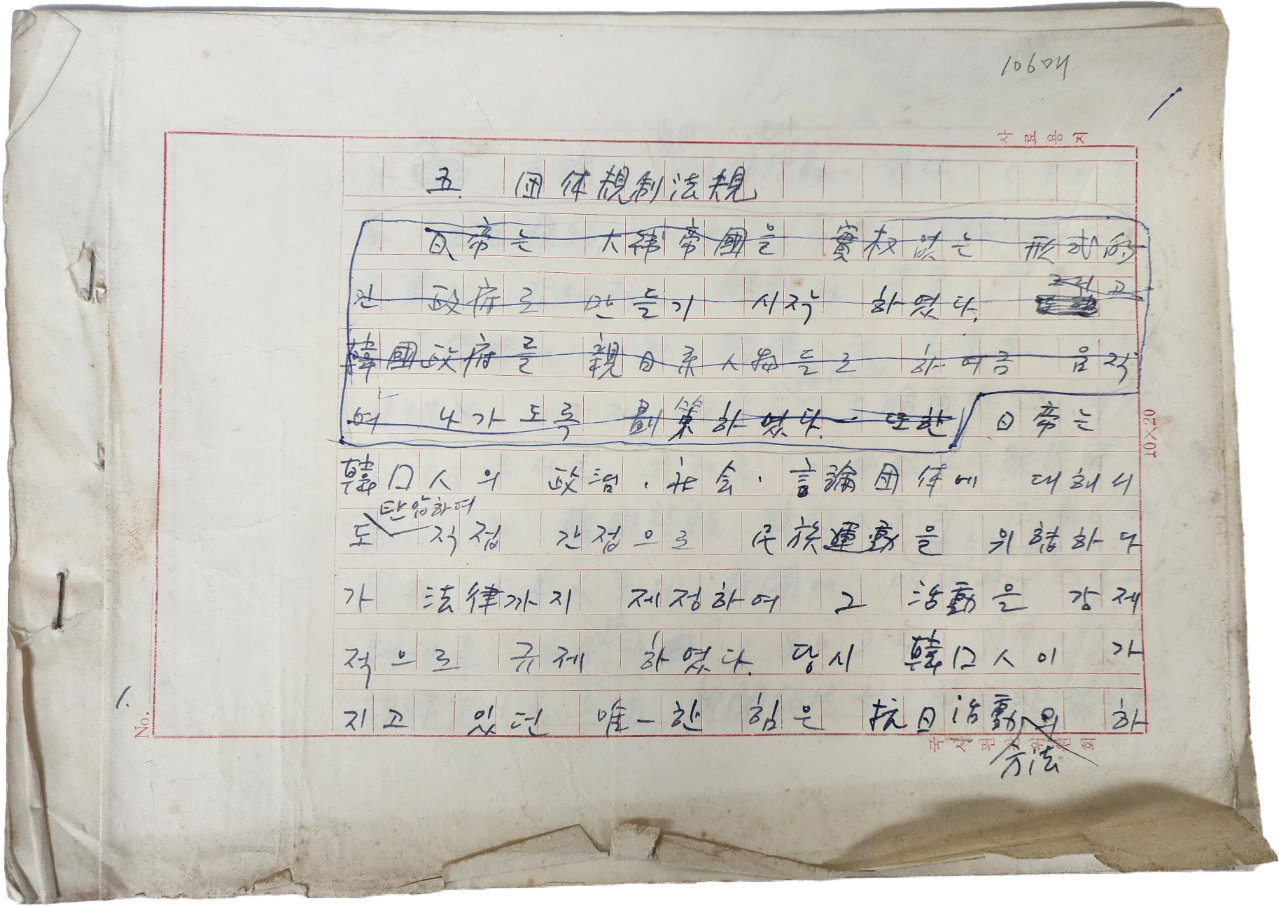 106매
1
사료용지
五. 団体規制法規
日帝는 大韓帝國을 實权없는 形式的
인 政府로 만들기 시작 하였다. 그리고
韓國政府를 親日系人物들로 하여금 움직
여 나가도록 劃策하였다. 또한 日帝는
韓口人의 政治·社会·言論団体에 대해서
탄압하며
도 직접 간접으로 民族運動을 위협하다
가 法律까지 제정하여 그 活動을 강제
적으로 규제 하였다. 당시 韓口人이 가
지고 있던 唯一한 힘은 抗日活動의 하
方法
국사편찬위원회
10×20
No.
1.